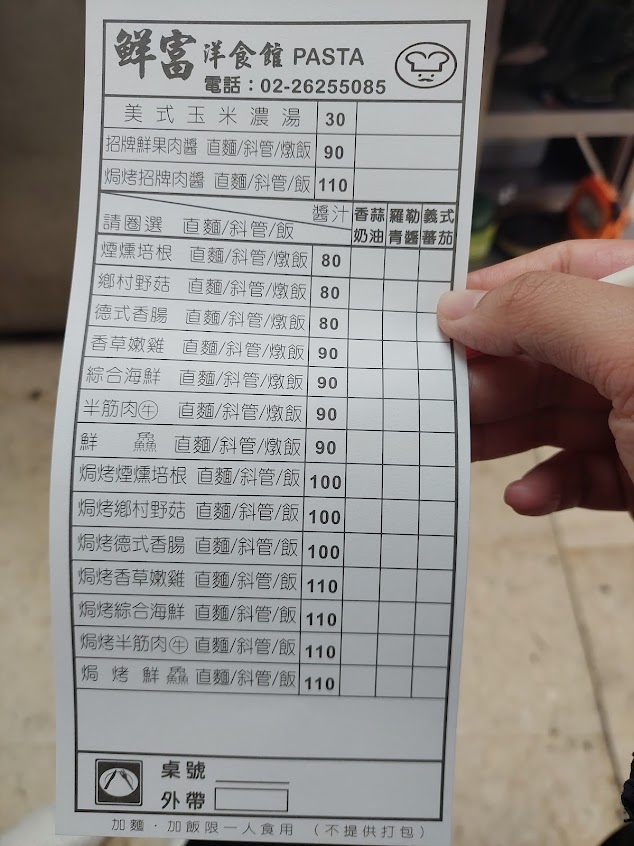 鮮富洋食館 PASTA
電話：02-26255085
美式玉米濃湯 30
招牌鮮果肉醬 直麵/斜管/燉飯 90
焗烤招牌肉醬 直麵/斜管/燉飯 110
醬汁 香蒜奶油 羅勒青醬 義式蕃茄
請圈選 直麵/斜管/飯
煙燻培根 直麵/斜管/燉飯 80
鄉村野菇 直麵/斜管/燉飯 80
德式香腸 直麵/斜管/燉飯 80
香草嫩雞 直麵/斜管/燉飯 90
綜合海鮮 直麵/斜管/燉飯 90
半筋肉㊉ 直麵/斜管/燉飯 90
鮮鱻 直麵/斜管/燉飯 90
焗烤煙燻培根 直麵/斜管/飯 100
焗烤鄉村野菇 直麵/斜管/飯 100
焗烤德式香腸 直麵/斜管/飯 100
焗烤香草嫩雞 直麵/斜管/飯 110
焗烤綜合海鮮 直麵/斜管/飯 110
焗烤半筋肉牛 直麵/斜管/飯 110
焗烤鮮鱻 直麵/斜管/飯 110
桌號
外帶
加麵．加飯限一人食用 （不提供打包）